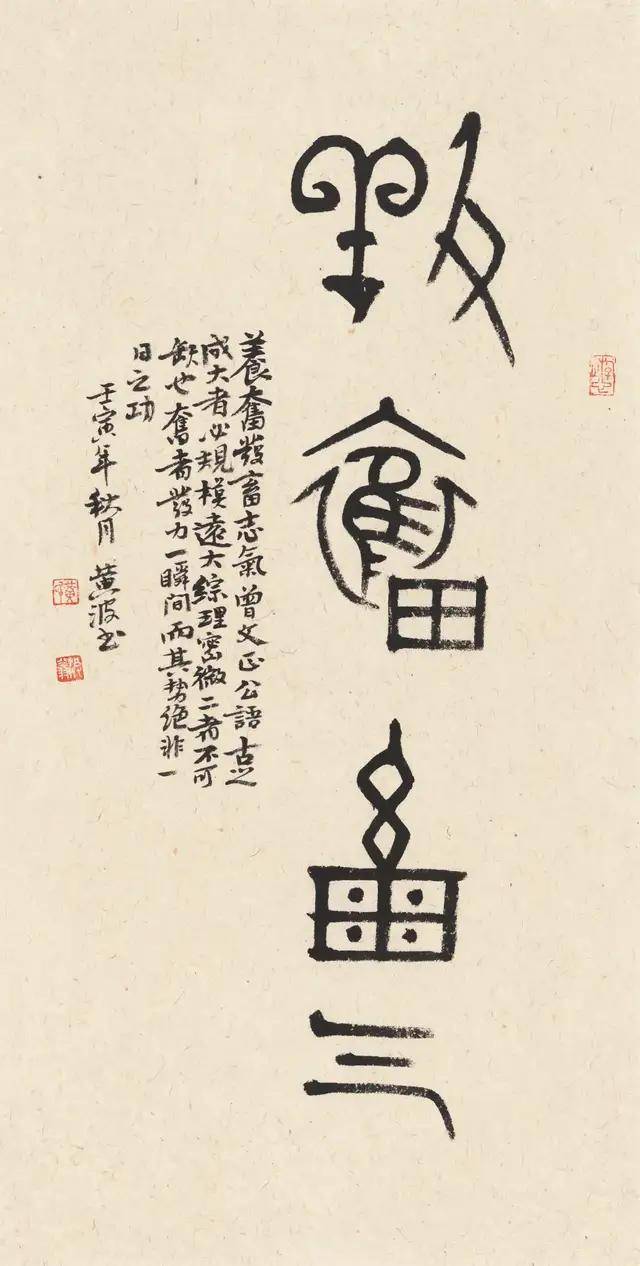 養奮畜气
養奮發畜志氣曾文正公語古之
成大者必規模遠大綜理密微二者不可
缺也奮者發力一瞬間而其勢絕非一
日之功
壬寅年秋月 黃波书